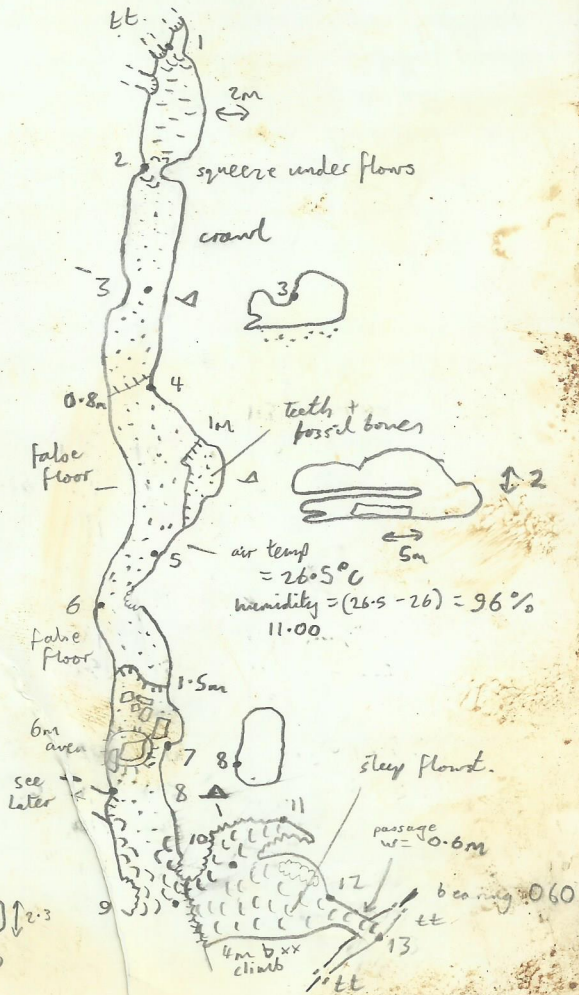 tt
1
2m
2
squeeze under flows
crawl
3
3
0.8m
4
1m
teeth +
fossil bones
false
floor
2
5m
5
air temp
= 26.5°C
humidity = (26.5 - 26) = 96%
11.00
6
false
floor
1.5m
6m
aven
7
8
see
later
8
steep flowst.
11
10
passage
w = 0.6m
12
bearing 060
tt
9
2.3
13
4m
climb
tt